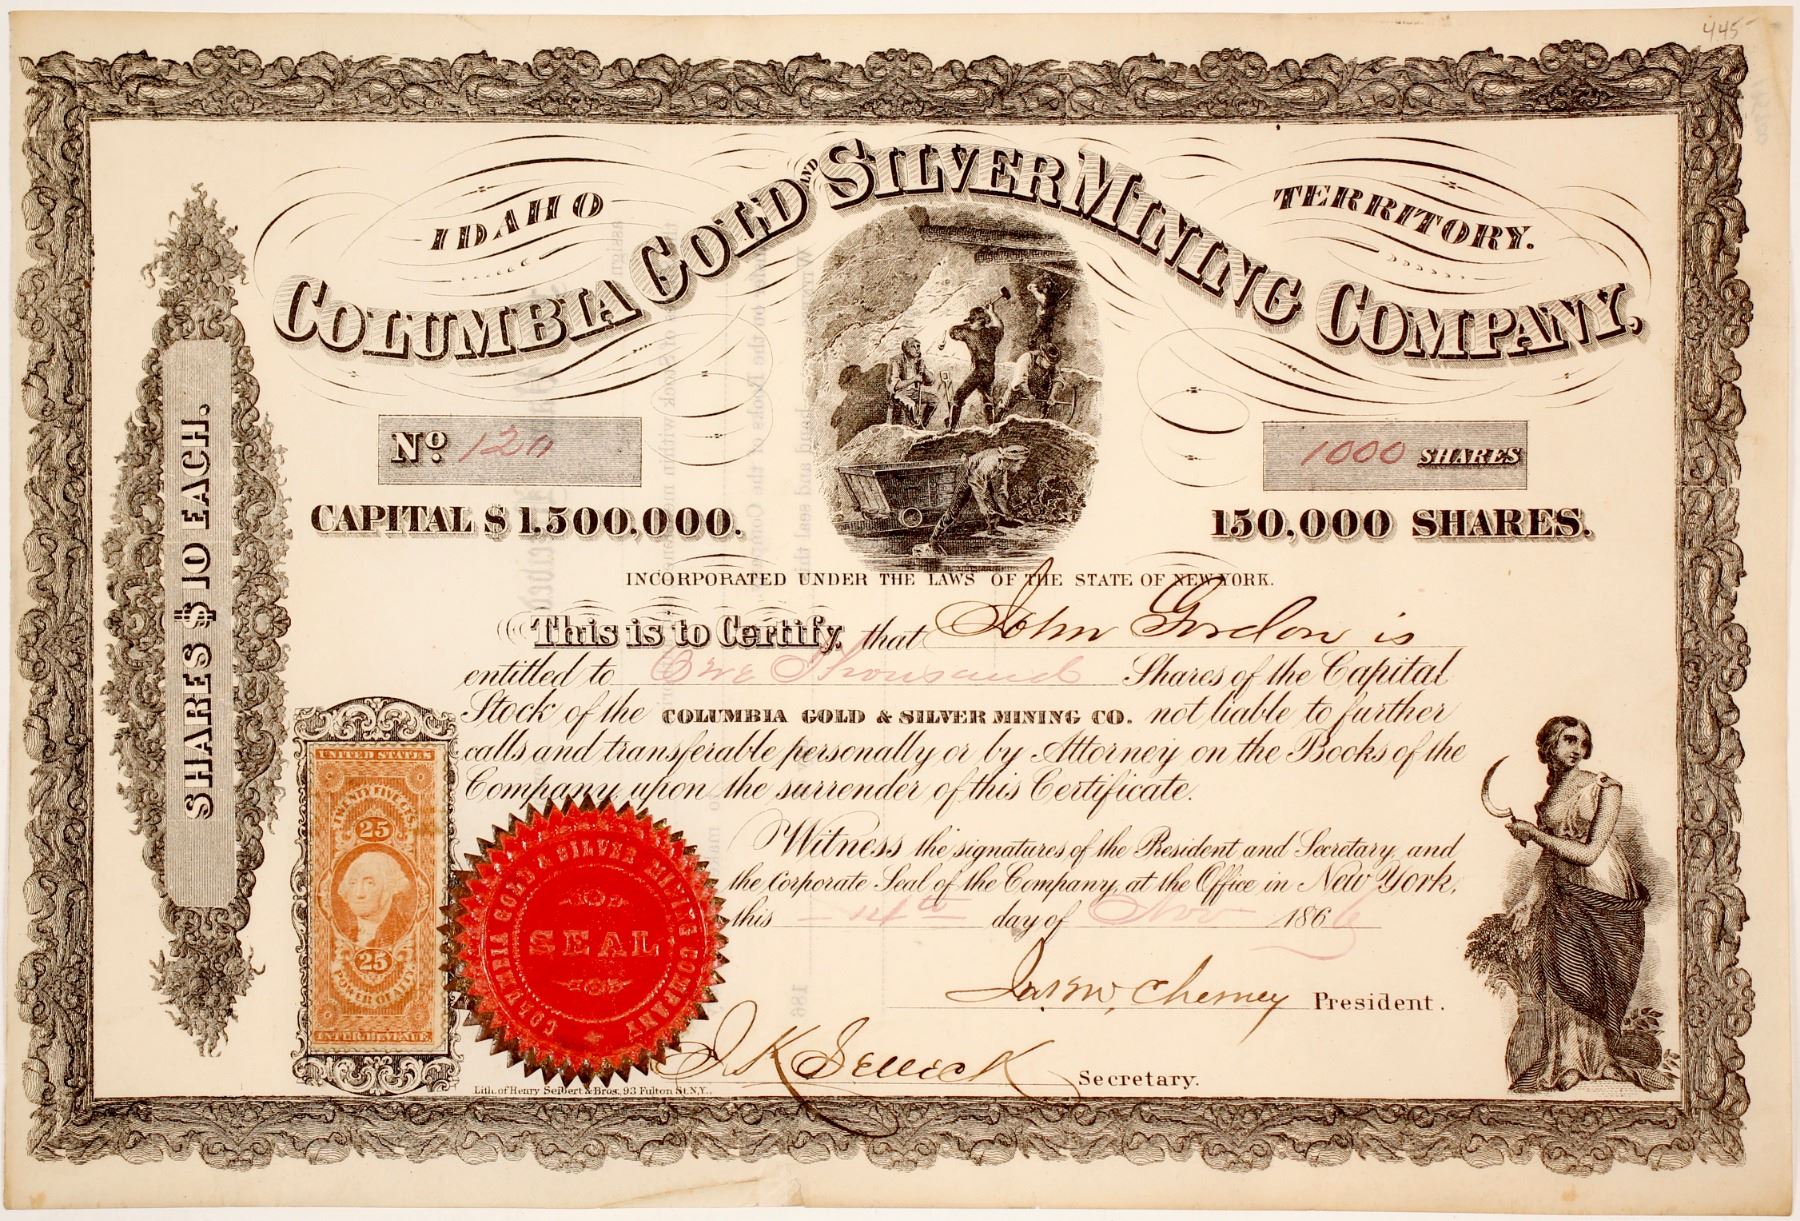 445
IDAHO
TERRITORY.
COLUMBIA GOLD AND SILVER MINING COMPANY,
SHARES $10 EACH.
No. 120
1000 SHARES
CAPITAL $1.500.000.
150,000 SHARES.
INCORPORATED UNDER THE LAWS OF THE STATE OF NEW YORK.
This is to Certify, that John Gordon is
entitled to One Thousand Shares of the Capital
Stock of the COLUMBIA GOLD & SILVER MINING CO. not liable to further
calls and transferable personally or by Attorney on the Books of the
Company upon the surrender of this Certificate.
Witness the signatures of the President and Secretary, and
the Corporate Seal of the Company, at the Office in New York,
this 14th day of Nov 1866
Cheney President.
J K Selleck Secretary.
UNITED STATES
TWENTY FIVE CTS.
25
25
POWER OF ATTY
INTER. REVENUE
COLUMBIA GOLD & SILVER MINING COMPANY
SEAL
Lith. of Henry Seibert & Bros. 93 Fulton St. N.Y.